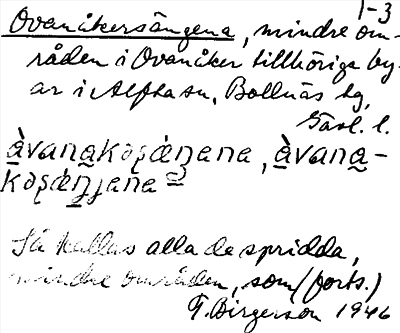 1-3
Ovanåkersängena, mindre om-
råden i Ovanåker tillhöriga by-
ar i Alfta sn, Bollnäs tg,
Gävl. l.
Så kallas alla de spridda,
mindre områden, som (forts.)
F. Birgerson 1946